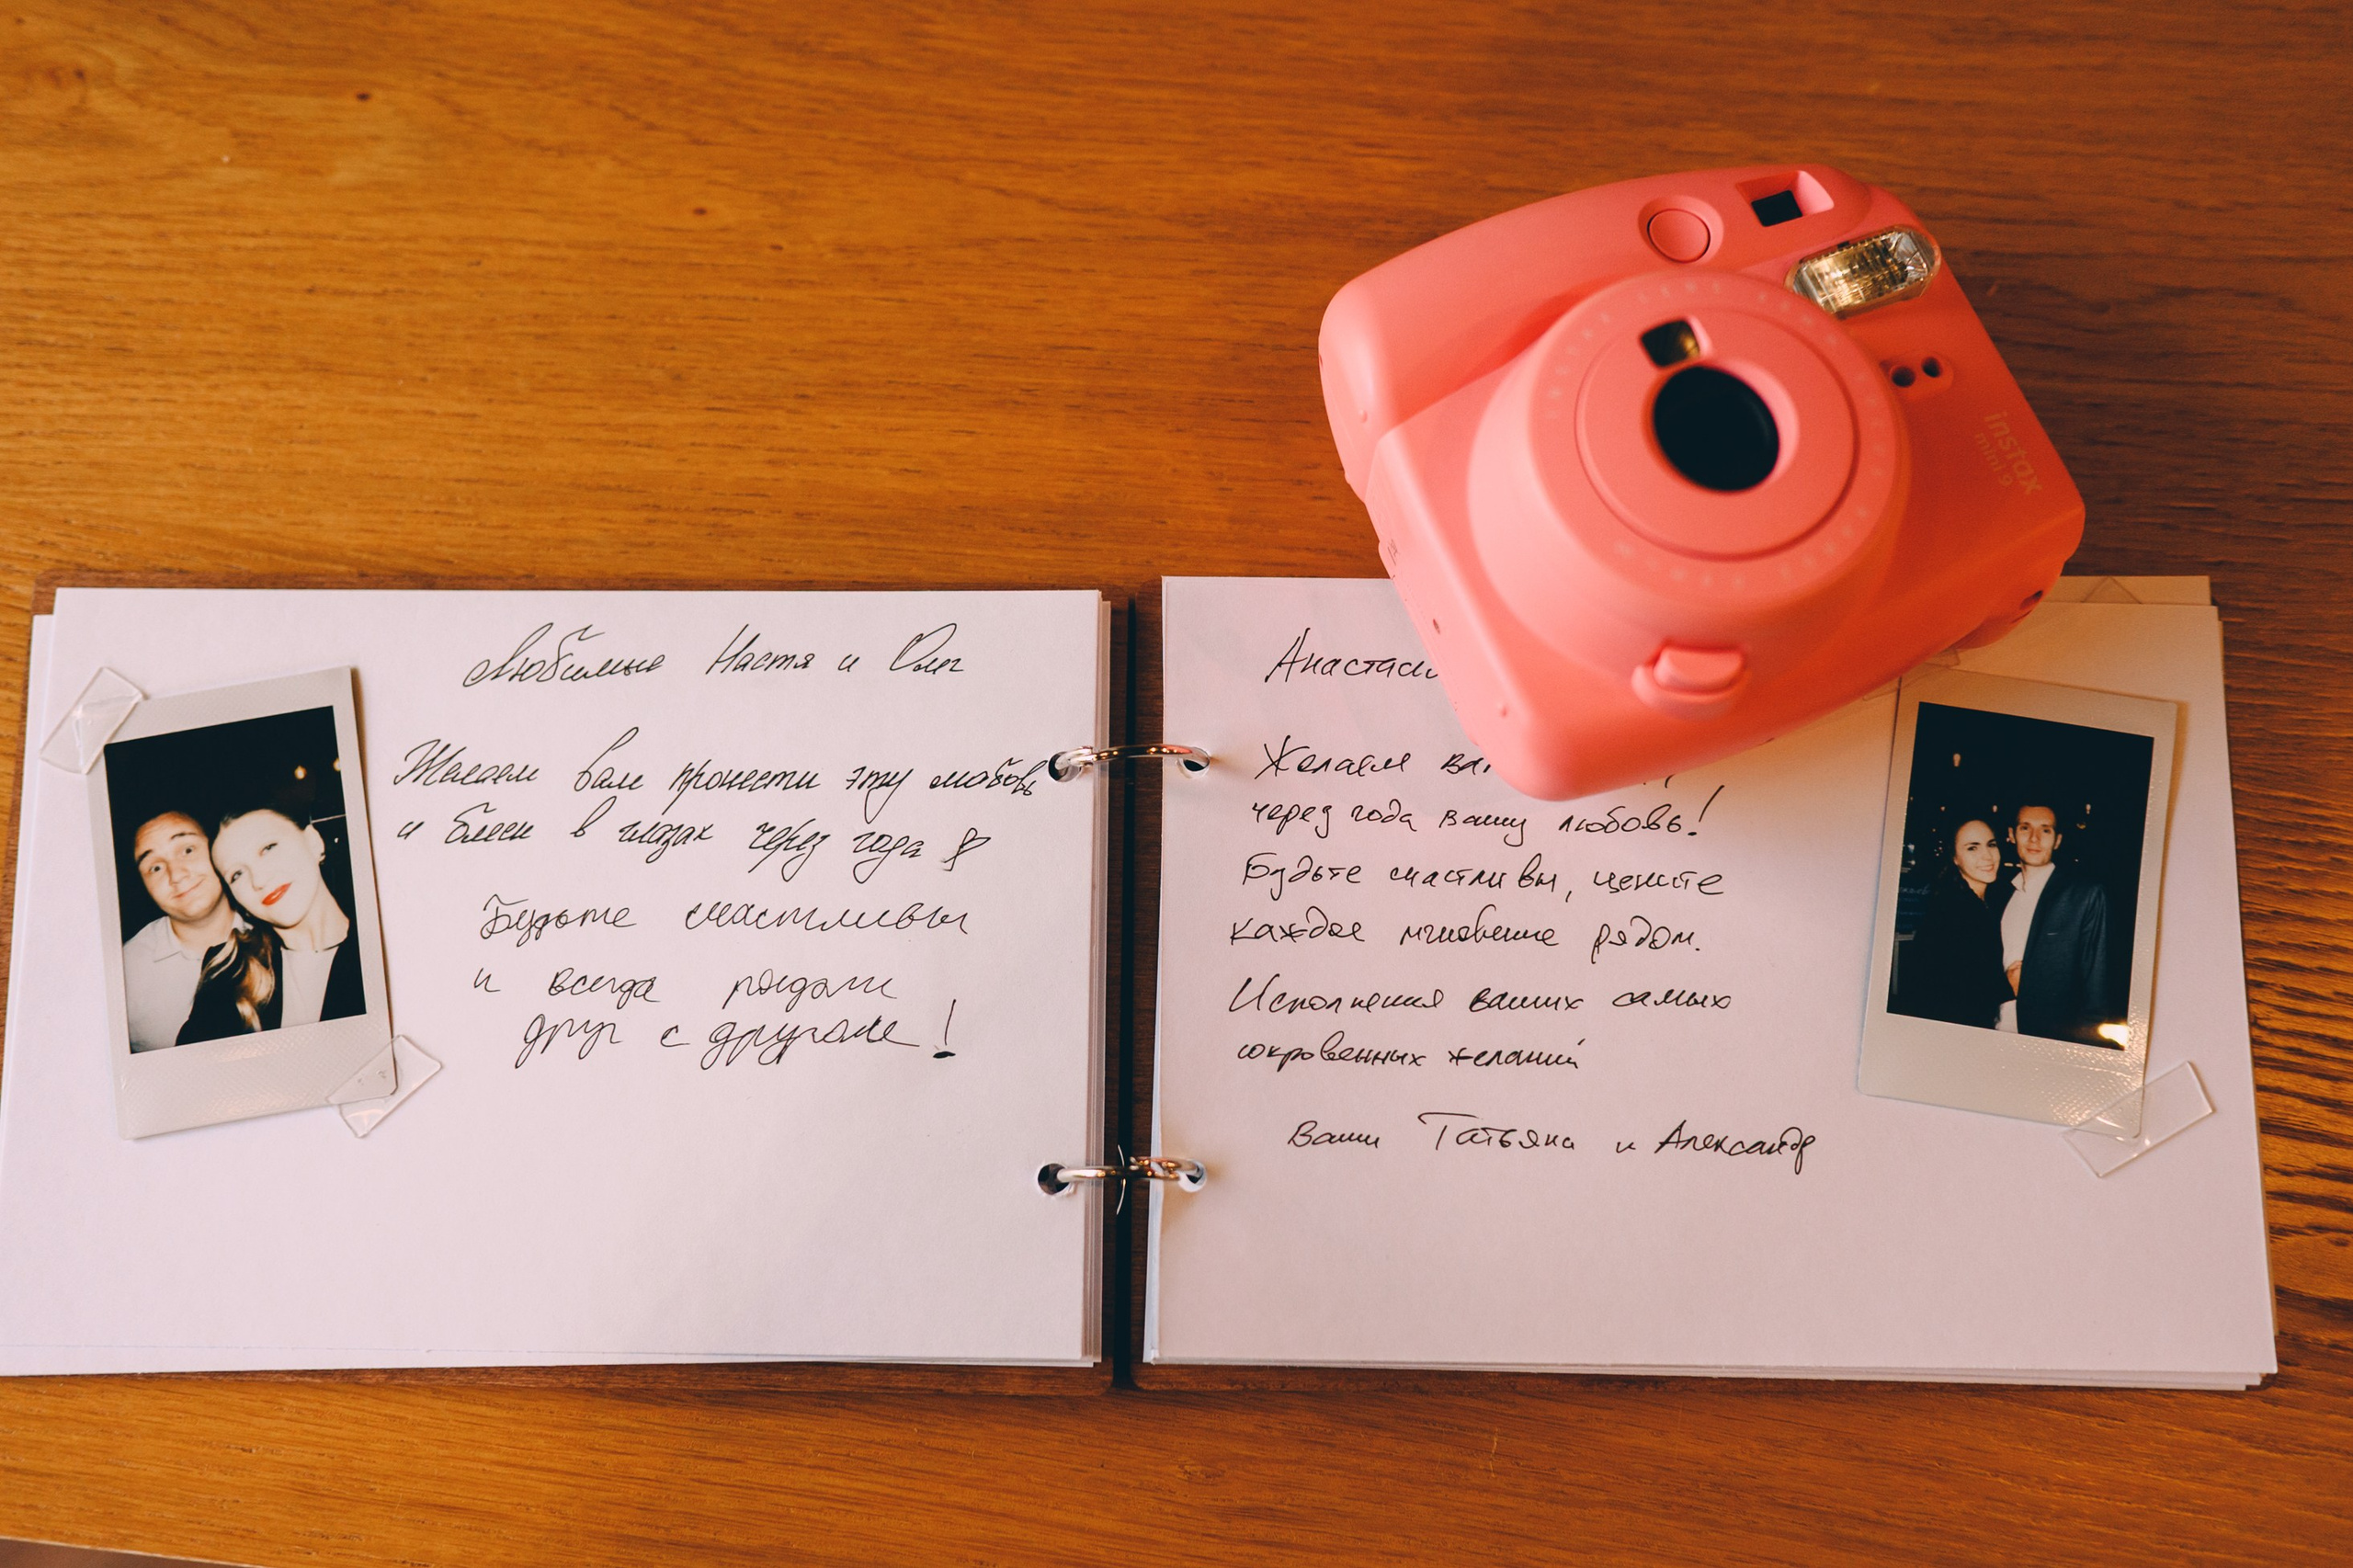 Любимые Настя и Олег
Желаем вам пронести эту любовь
и блеск в глазах через года
Будьте счастливы
и всегда рядом
друг с другом!
Желаем
через года вашу любовь!
Будьте счастливы, цените
каждое мгновение рядом.
Исполнения ваших самых
сокровенных желаний
Ваши Татьяна и Александр
instax
mini 9